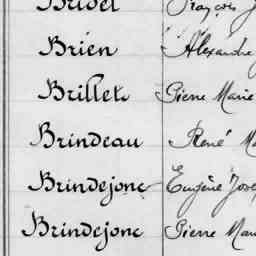 Bridel François J
Brien Alexandre
Brillet Pierre Marie
Brindeau René Ma
Brindejonc Eugène Jose
Brindejonc Pierre Mari